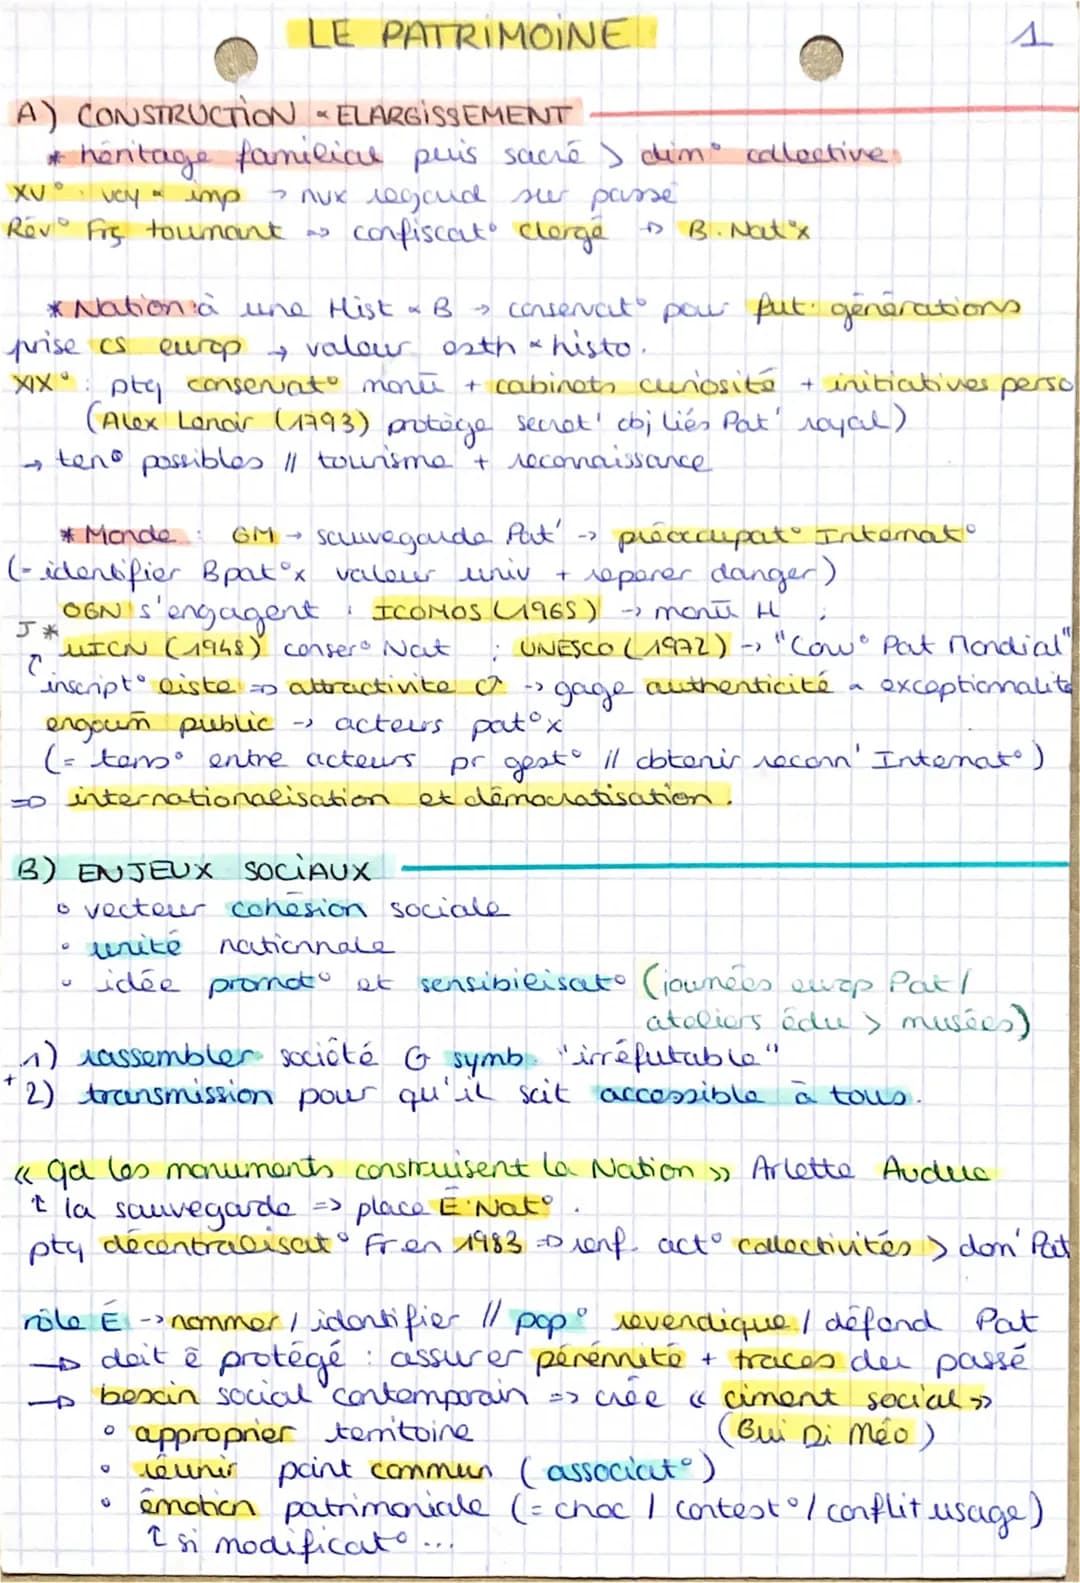 LE PATRIMOINE
1
A) CONSTRUCTION & ELARGISSEMENT
* héritage familial puis sacré > dim° collective
XV° : voy & imp → nux regard sur passé
Rév° Frç tournant => confiscat° clergé → B. Nat°x
* Nation : à une Hist & B → conservat° pour fut. générations
prise cs europ → valeur esth & histo.
XIX° : ptq conservat° monu + cabinets curiosité + initiatives perso
(Alex Lenoir (1793) protège secret' obj liés Pat' royal)
→ ten° possibles // tourisme + reconnaissance
* Monde : GM → sauvegarde Pat' -> préoccupat° Internat°
(- identifier B pat°x valeur univ + reperer danger)
OGN s'engagent : ICOMOS (1965) → monu H ;
J * UICN (1948) conser° Nat ; UNESCO (1972) -> "Conv° Pat Mondial"
inscript° liste => attractivité ↗ -> gage authenticité & exceptionnalité
engoum public -> acteurs pat°x
(= tens° entre acteurs pr gest° // obtenir reconn' Internat°)
=> internationalisation et démocratisation.
B) ENJEUX SOCIAUX
• vecteur cohésion sociale
• unité nationnale
• idée promot° et sensibilisat° (journées europ Pat /
ateliers édu > musées)
1) rassembler société symb "irréfutable"
+ 2) transmission pour qu'il soit accessible à tous.
« qd les monuments construisent la Nation » Arlette Auduc
↑ la sauvegarde => place É. Nat°.
ptq décentralisat° Fr en 1983 => renf. act° collectivités > dom' Pat
rôle É -> nommer / identifier // pop° revendique / défend Pat
→ doit ê protégé : assurer pérénnité + traces du passé
→ besoin social contemporain => crée « ciment social »
• approprier territoire (Gui Di Méo)
• réunir point commun (associat°)
• émotion patrimoniale (= choc / contest° / conflit usage)
↑ si modificat° ...